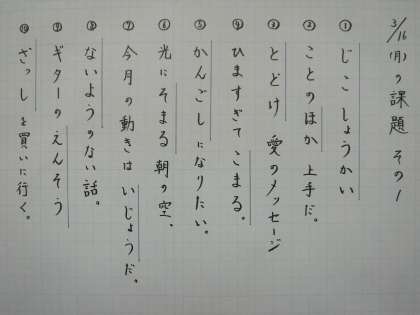 3/16(月)の課題 その1
① じこしょうかい
② ことのほか上手だ。
③ とどけ 愛のメッセージ
④ ひますぎてこまる。
⑤ かんごしになりたい。
⑥ 光にそまる朝の空、
⑦ 今月の動きはいじょうだ。
⑧ ないようのない話。
⑨ ギターのえんそう
⑩ ざっしを買いに行く。